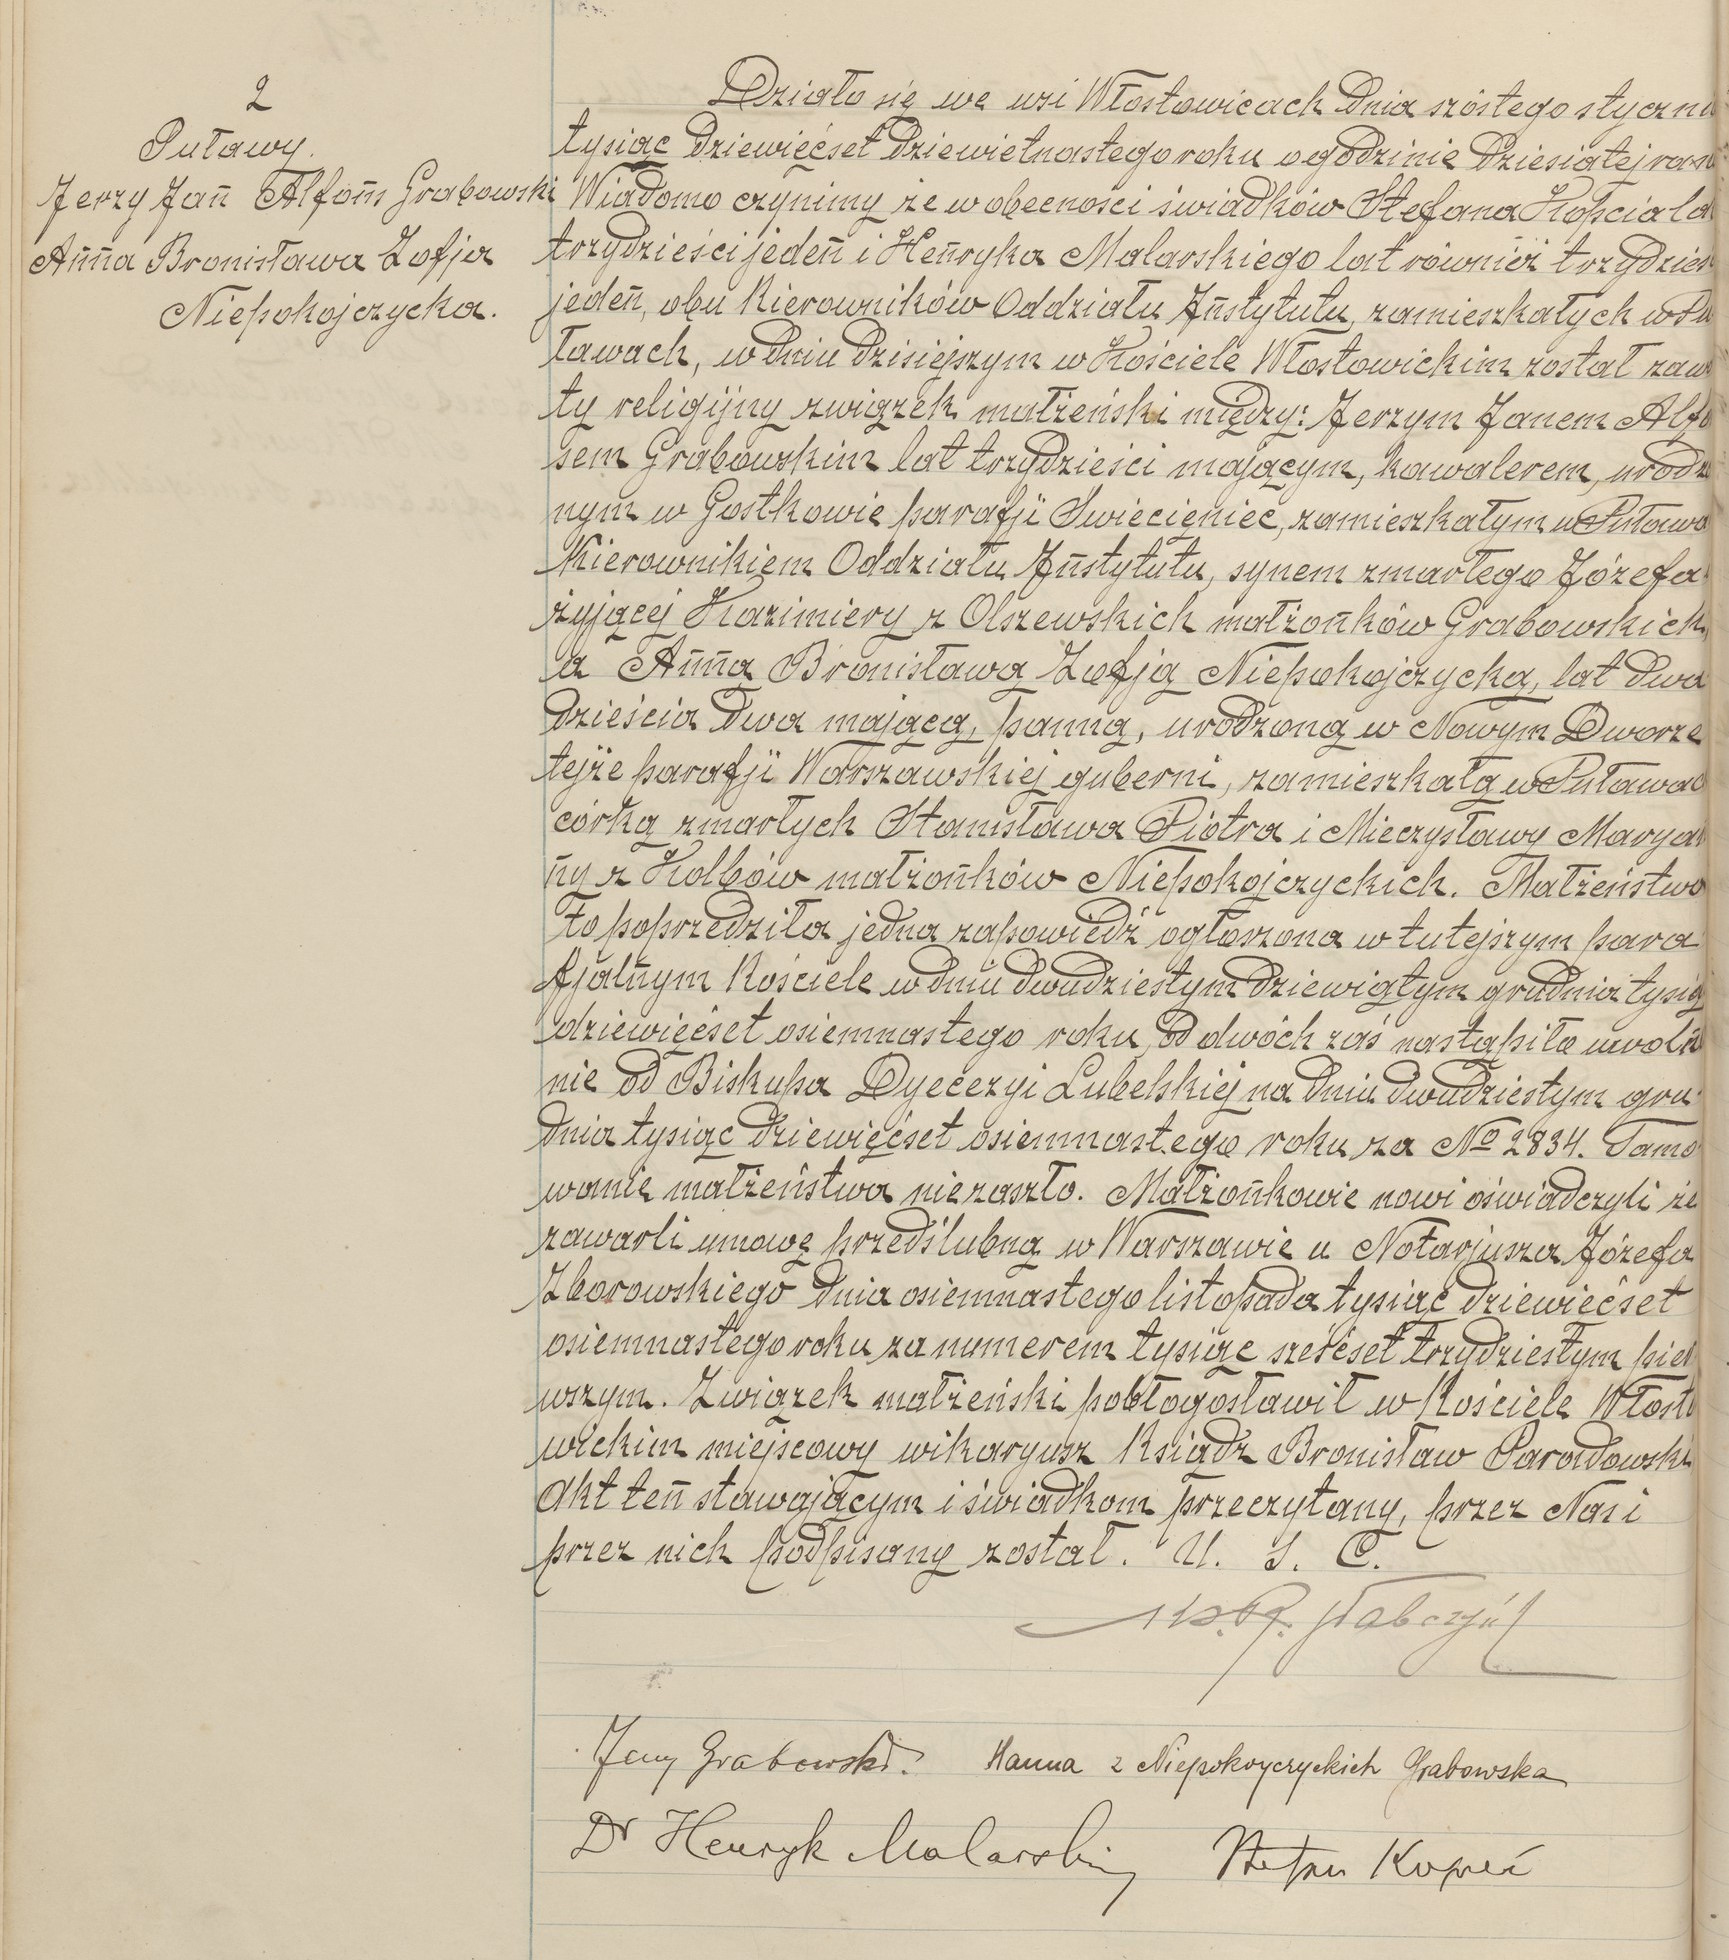 2
Puławy.
Jerzy Jan Alfons Grabowski
Anna Bronisława Zofja
Niepokojczycka.
Działo się we wsi Włostowicach dnia szóstego styczni
tysiąc dziewięćset dziewietnastego roku o godzinie dziesiątej ran
Wiadomo czynimy że w obecności świadków Stefana Kopścia la
trzydzieści jeden i Henryka Malarskiego lat również trzydzieś
jeden, obu Kierowników Oddziału Instytutu, zamieszkałych w Pu
ławach, w dniu dzisiejszym w Kościele Włostowickim został zaw
ty religijny związek małżeński między: Jerzym Janem Alfo
sem Grabowskim lat trzydzieści mającym, kawalerem, urodzo
nym w Gostkowie parafji Swiecieniec, zamieszkałym w Puławac
Kierownikiem Oddziału Instytutu, synem zmarłego Józefa
żyjącej Kazimiery z Olszewskich małżonków Grabowskich,
a Anną Bronisławą Zofją Niepokojczycką, lat dwa
dzieścia dwa mającą, panną, urodzoną w Nowym Dworze
tejże parafji Warszawskiej guberni, zamieszkałą w Puławac
córką zmarłych Stanisława Piotra i Mieczysławy Maryan
ny z Kolbów małżonków Niepokojczyckich. Małżeństwo
to poprzedziła jedna zapowiedź ogłoszona w tutejszym para
fjalnym Kościele w dniu dwudziestym dziewiątym grudnia tysią
dziewięćset osiemnastego roku, od dwóch zaś nastąpiło uwoln
nie od Biskupa Dyecezyi Lubelskiej na dniu dwudziestym gru
dnia tysiąc dziewięćset osiemnastego roku za No 2834. Tamo
wanie małżeństwa nie zaszło. Małżonkowie nowi oświadczyli że
zawarli umowę przedślubną w Warszawie u Notarjusza Józefa
Zborowskiego dnia osiemnastego listopada tysiąc dziewięćset
osiemnastego roku za numerem tysiąc sześćset trzydziestym pier
wszym. Związek małżeński pobłogosławił w Kościele Włosto
wickim miejscowy wikaryusz Ksiądz Bronisław Paradowski
Akt ten stawającym i świadkom przeczytany, przez Nas i
przez nich podpisany został. U. S. C.
Jerzy Grabowski.
Hanna z Niepokoyczyckich Grabowska
Dr Henryk Malarski
Stefan Kopeć